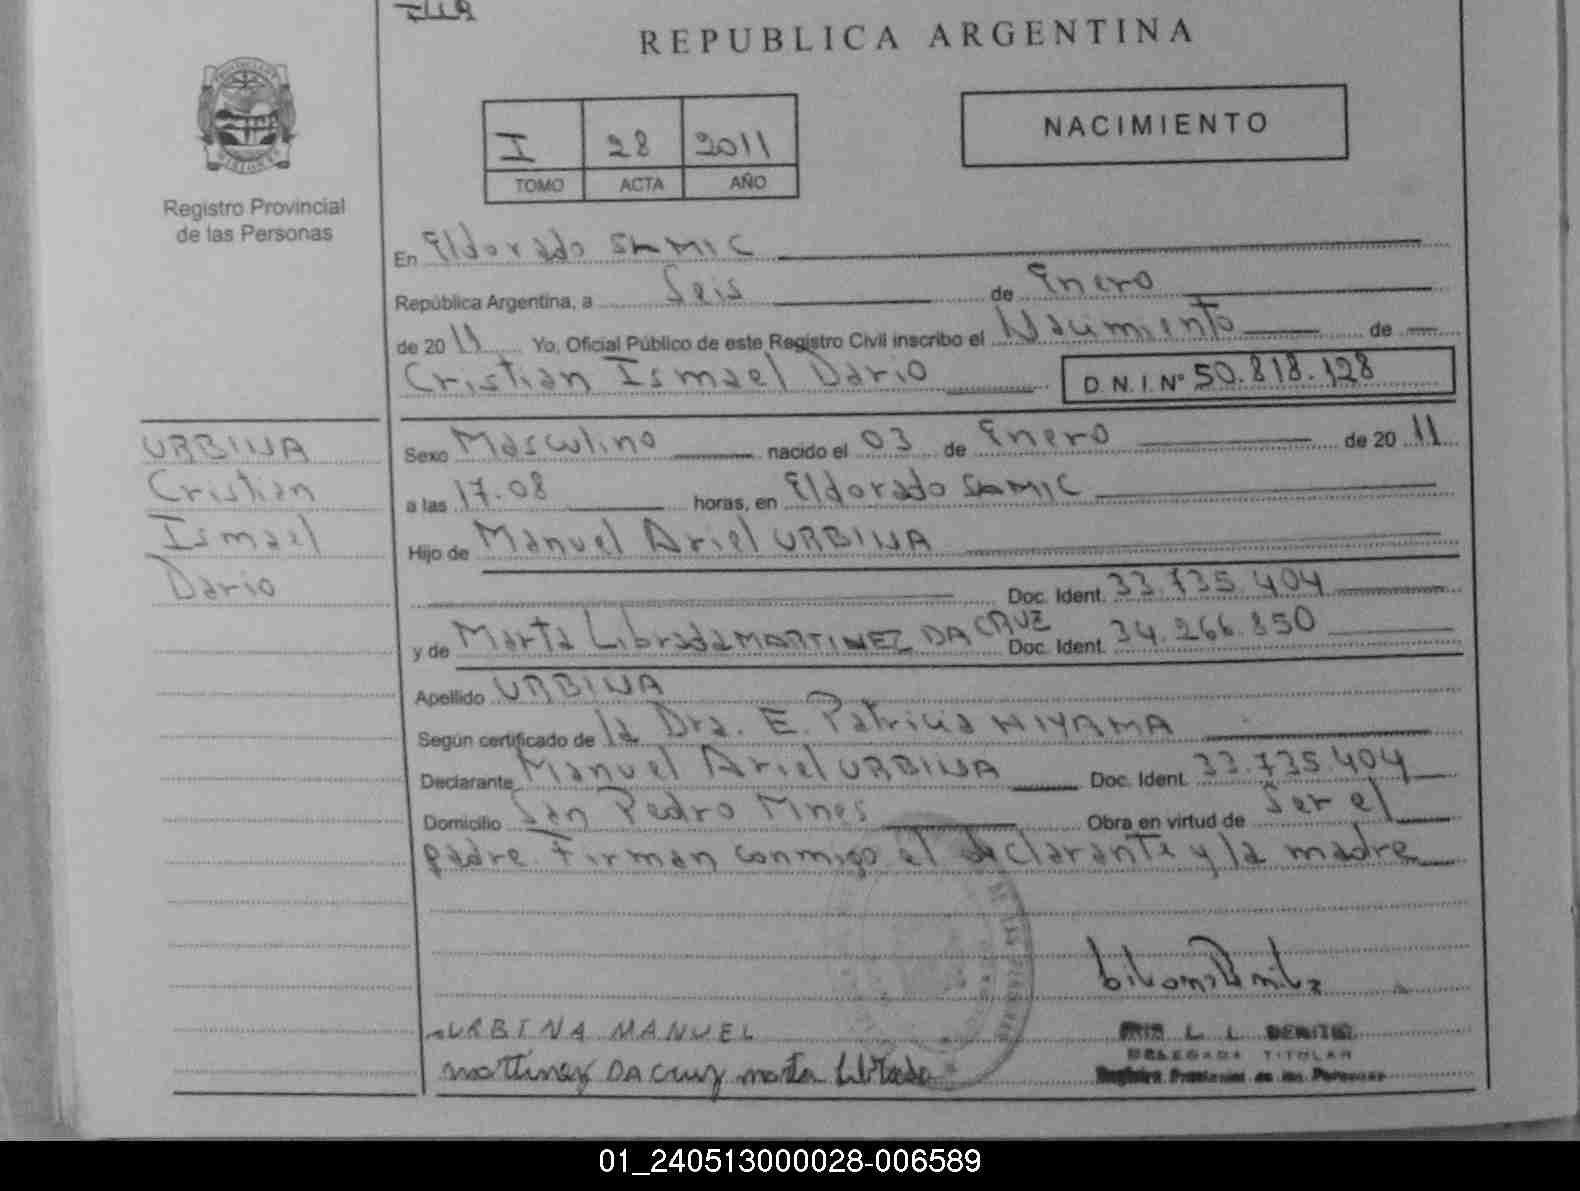 REPUBLICA ARGENTINA
I 28 2011
TOMO ACTA AÑO
NACIMIENTO
Registro Provincial
de las Personas
En Eldorado SAMIC
República Argentina, a Seis de Enero
de 2011 Yo, Oficial Público de este Registro Civil inscribo el Nacimiento de
Cristian Ismael Dario D.N.I. Nº 50.818.128
URBINA
Cristian
Ismael
Dario
Sexo Masculino nacido el 03 de Enero de 2011
a las 17.08 horas, en Eldorado SAMIC
Hijo de Manuel Ariel URBINA
Doc. Ident. 33.735.404
y de Marta Librada MARTINEZ DA CRUZ Doc. Ident. 34.266.850
Apellido URBINA
Según certificado de la Dra. E. Patricia MIYAMA
Declarante Manuel Ariel URBINA Doc. Ident. 33.735.404
Domicilio San Pedro Mnes Obra en virtud de ser el
padre. Firman conmigo el declarante y la madre
URBINA MANUEL
martinez DA Cruz marta librada
L. BENITEZ
DELEGADA TITULAR
Registro Provincial de las Personas
01_240513000028-006589